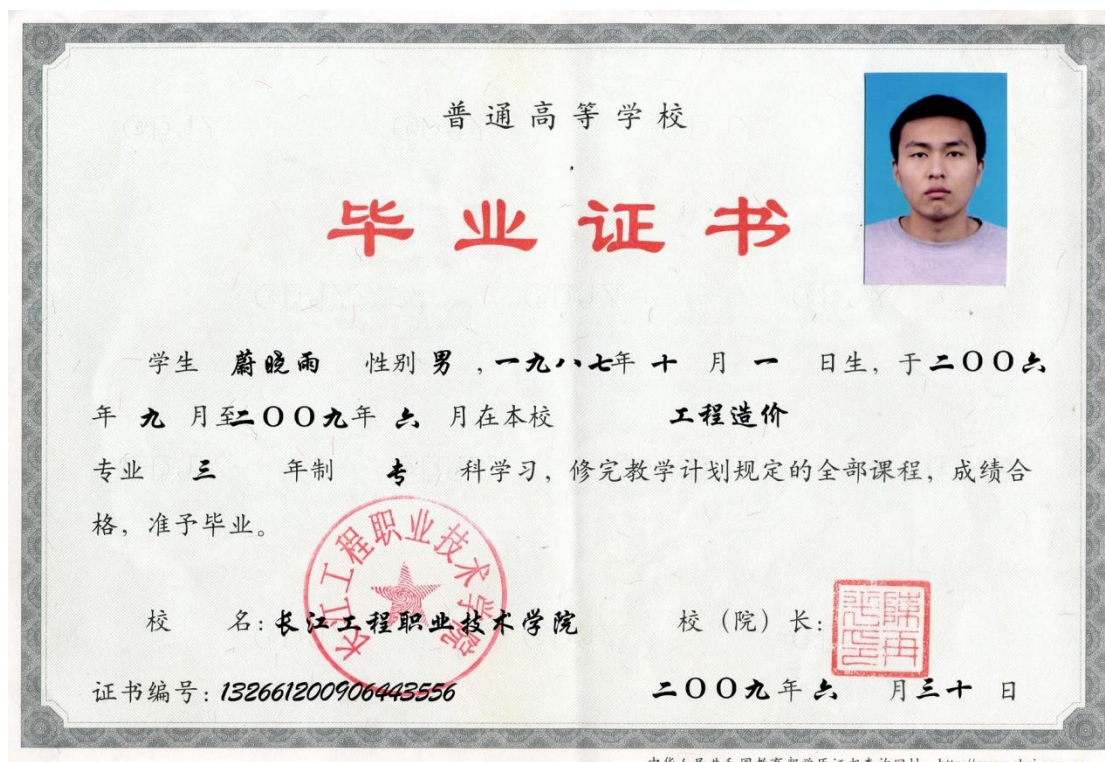 普通高等学校
毕业证书
学生 蔚晓雨 性别 男 ,一九八七年 十 月 一 日生, 于二〇〇六
年 九 月至二〇〇九年 六 月在本校 工程造价
专业 三 年制 专 科学习, 修完教学计划规定的全部课程, 成绩合
格, 准予毕业。
长江工程职业技术学院
校 名: 长江工程职业技术学院 校 (院) 长:
证书编号: 132661200906443556 二〇〇九年 六 月三十 日